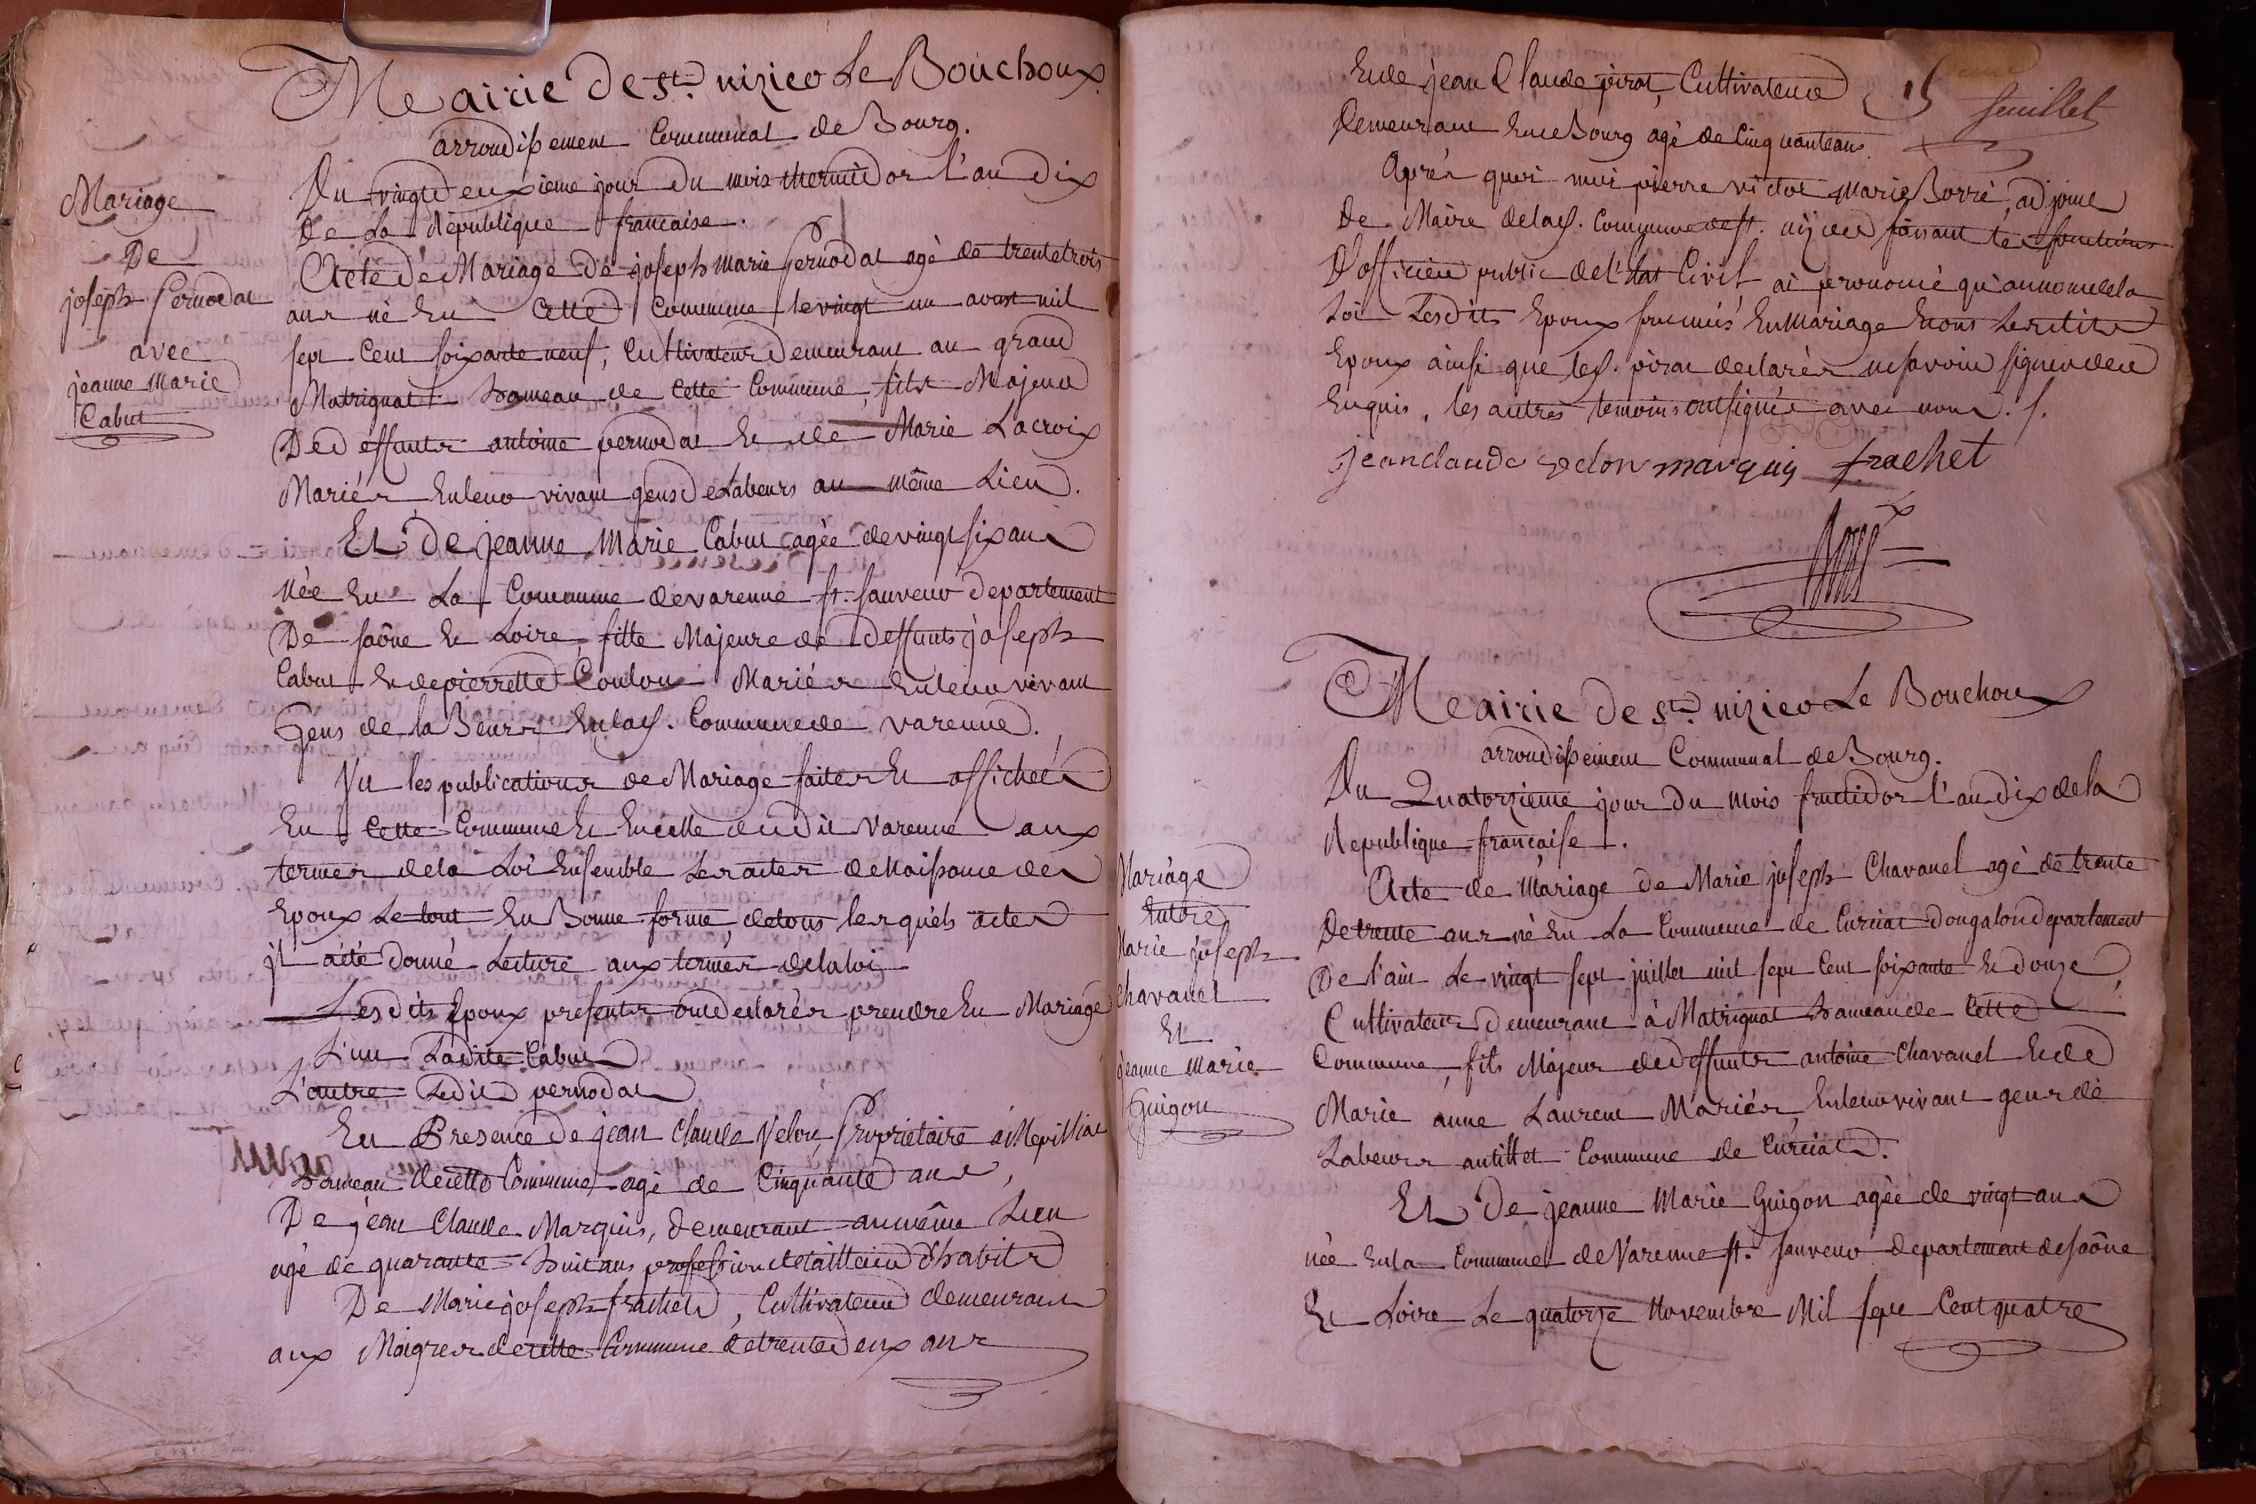 Mairie de St. nizier Le Bouchoux
arrondissement Communal de Bourg.
Mariage
De
joseph Pernodat
avec
jeanne Marie
Cabut
Du vingt deuxieme jour du mois thermidor l'an dix
De La République française.
Acte de Mariage de joseph marie Pernodat agé de trente trois
ans né En Cette Commune le vingt un aoust mil
sept Cent soixante neuf, Cultivateur Demeurant au grand
Matrignat hameau de Cette Commune, fils Majeur
De deffunts antoine pernodat Et de Marie Lacroix
Mariés En leur vivant gens de Labeurs au même Lieu.
Et De jeanne Marie Cabut agée de vingt six ans
Née En La Commune de varenne st. sauveur departement
De saône Et Loire, fille Majeure de Deffunts joseph
Cabut Et de pierrette Coulon Mariés En leur vivant
Gens de la Beurs En lad. Commune de varenne.
Vu les publications de Mariage faites Et affichées
En Cette Commune Et En celle dudit Varenne aux
termes de la Loi Ensemble Les actes de Naissance des
Epoux Le tout En Bonne forme, de tous lesquels actes
jl a été donné Lecture aux termes de la loi
Lesdits Epoux presents ont declarés prendre En Mariage
L'un Ladite Cabut
L'autre Ledit pernodat
En Presence de jean Claude Velon Proprietaire á Mepilliat
hameau de cette Commune agé de Cinquante ans,
De jean Claude Marquis, demeurant au même Lieu
agé de quarante huit ans profession de tailleur d'habits
De Marie joseph frachet, Cultivateur demeurant
aux Maigres de cette Commune de trente deux ans
15 feuillet
Et de jean Claude pirat, Cultivateur
Demeurant En ce Bourg agé de Cinquante ans.
Après quoi moi pierre victor Marie Borré, adjoint
De Maire de lad. Commune de st. nizier faisant les fonctions
D'officier public de l'Etat Civil ai prononcé qu'au nom de la
Loi Lesdits Epoux sont unis En Mariage Et ont Lesdits
Epoux ainsi que led. pirat declarés ne savoir signer de ce
Enquis, les autres temoins ont signés avec nous. /.
jeanclaude velon marquis frachet
Mairie de St. nizier Le Bouchoux
arrondissement Communal de Bourg.
Du Quatorzieme jour du mois fructidor l'an dix de la
Republique française.
Mariage
Entre
Marie joseph
Chavanel
Et
jeanne Marie
Guigon
Acte de Mariage de Marie joseph Chavanel agé de trente
De trente ans né En La Commune de Curciat dongalon departement
De l'ain Le vingt sept juillet mil sept Cent soixante Et douze,
Cultivateur Demeurant à Matrignat hameau de Cette
Commune, fils Majeur de deffunts antoine Chavanel Et de
Marie anne Laurent Mariés En leur vivant gens de
Labeurs au tillet Commune de Curciat.
Et De jeanne Marie Guigon agée de vingt ans
née En la Commune de Varenne st. sauveur departement de saône
Et Loire Le quatorze Novembre Mil sept Cent quatre